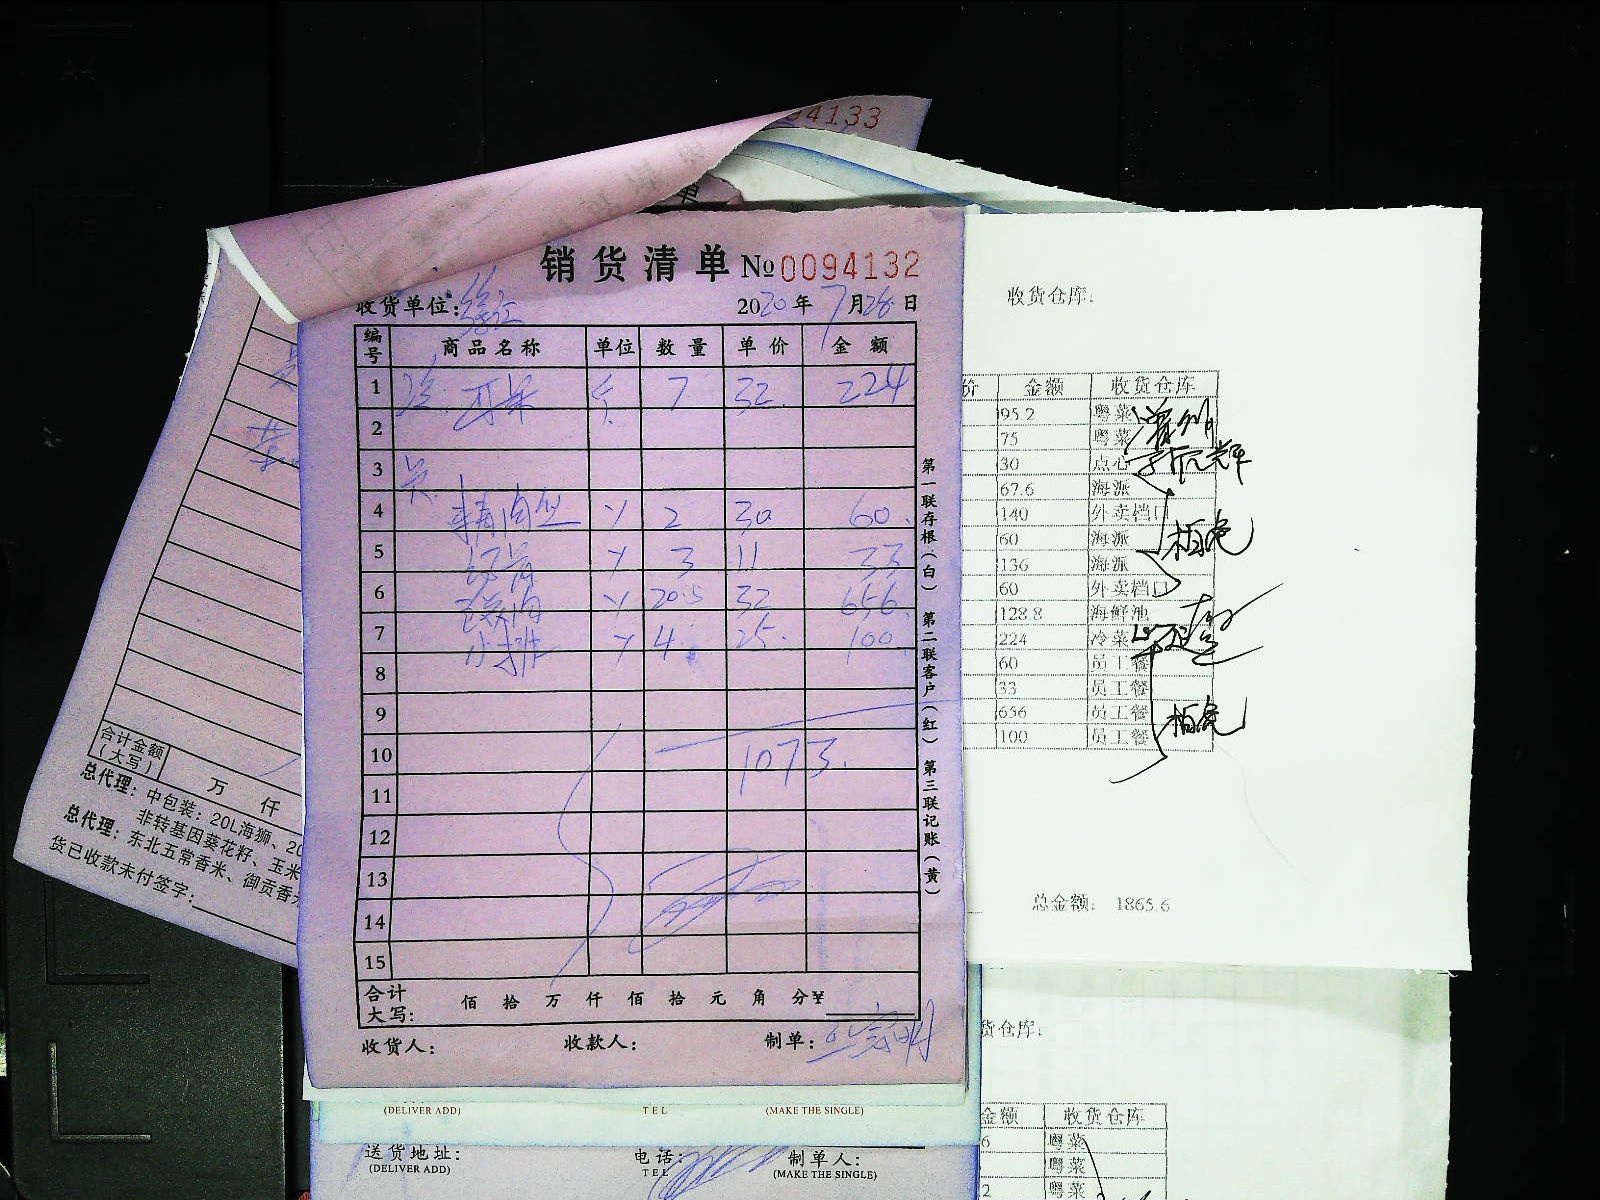 94133
销货清单 №0094132
收货单位: 徐汇 2020年7月28日
编号 商品名称 单位 数量 单价 金额
1 7 32. 224
2
3
4 精肉丝 2 30 60.
5 3 11 33
6 20.5 32 656.
7 小排 4. 25. 100.
8
9
10 1073.
11
12
13
14
15
合计大写: 佰 拾 万 仟 佰 拾 元 角 分¥
收货人: 收款人: 制单:
第一联存根(白) 第二联客户(红) 第三联记账(黄)
合计金额(大写) 万 仟
总代理: 中包装: 20L海狮、20
非转基因葵花籽、玉米
总代理: 东北五常香米、御贡香
货已收款未付签字:
收货仓库:
价 金额 收货仓库
95.2 粤菜
75 粤菜
30 点心
67.6 海派
140 外卖档口
60 海派
136 海派
60 外卖档口
128.8 海鲜池
224 冷菜
60 员工餐
33 员工餐
656 员工餐
100 员工餐
总金额: 1865.6
(DELIVER ADD) TEL (MAKE THE SINGLE)
送货地址: 电话: 制单人:
(DELIVER ADD) TEL (MAKE THE SINGLE)
货仓库:
金额 收货仓库
6 粤菜
粤菜
2 粤菜